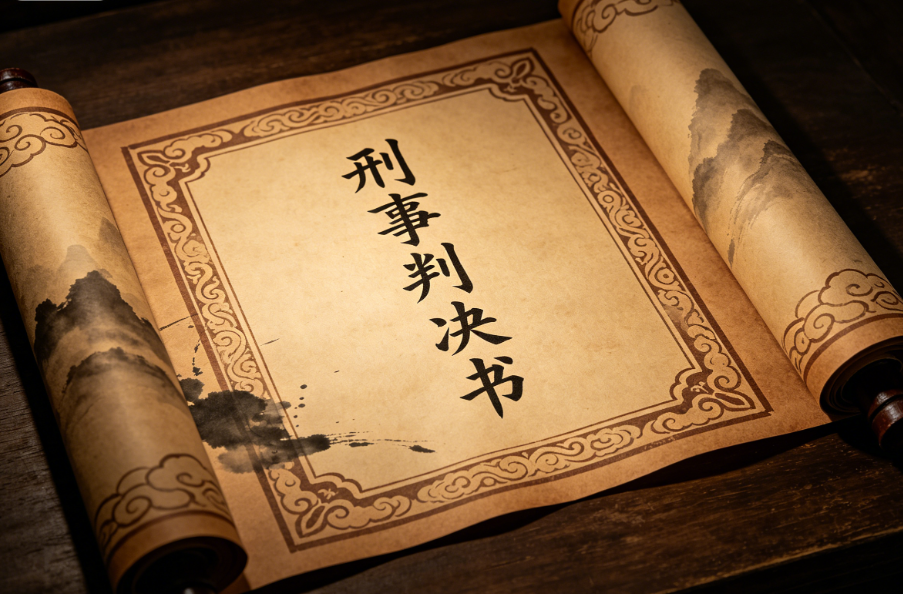 刑事判决书